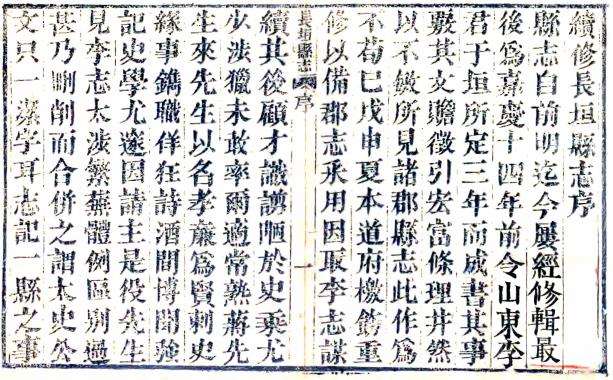 續修長垣縣志序
縣志自前明迄今屢經修輯最
後爲嘉慶十四年前令山東李
君于垣所定三年而成書其事
覈其文贍徵引宏富條理井然
以不敏所見諸郡縣志此作爲
不茍已戊申夏本道府檄飭重
修以備郡志采用因取李志謀
長垣縣志 序 一
續其後顧才識譾陋於史乘尤
少涉獵未敢率爾適常熟蔣先
生來先生以名孝廉爲賢刺史
緣事鐫職佯狂詩酒間博聞強
記史學尤邃因請主是役先生
見李志太涉繁蕪體例區別過
甚乃刪削而合併之謂太史公
文只一潔字耳志記一縣之事